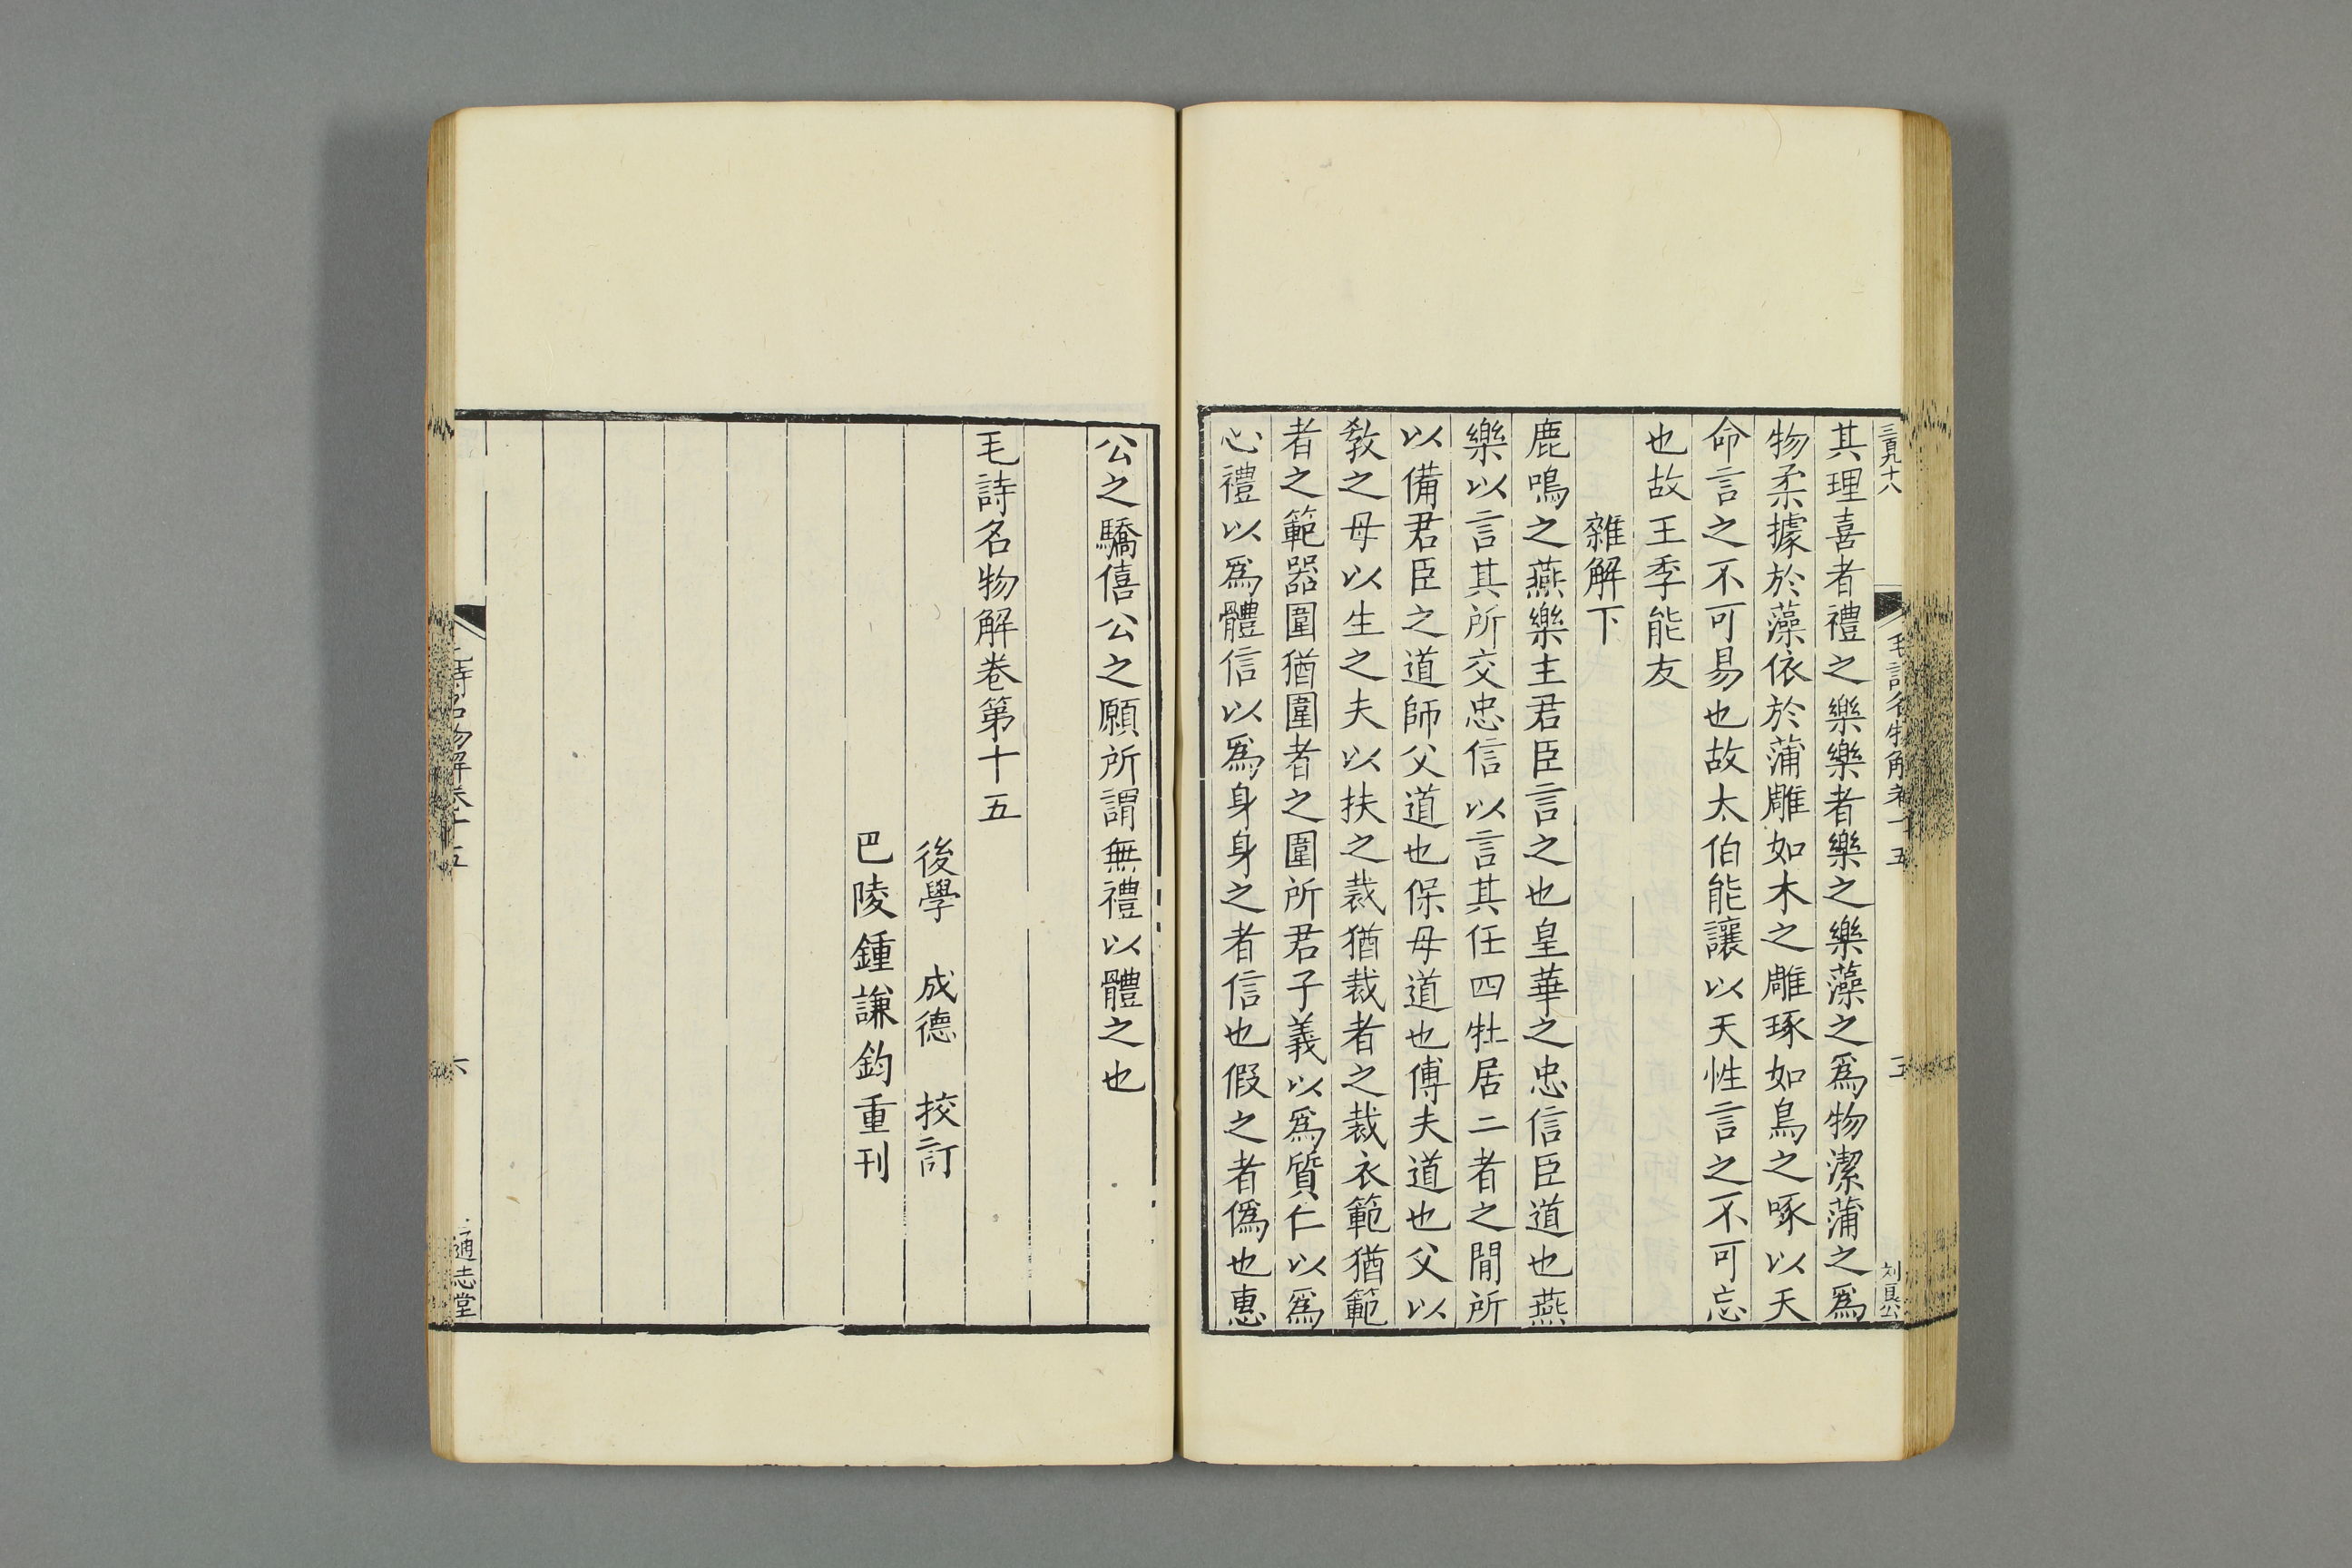 三百九十八
毛詩名物解卷十五
五
其理喜者禮之樂樂者樂之樂藻之爲物潔蒲之爲
物柔據於藻依於蒲雕如木之雕琢如鳥之啄以天
命言之不可易也故太伯能讓以天性言之不可忘
也故王季能友
雜解下
鹿鳴之燕樂主君臣言之也皇華之忠信臣道也燕
樂以言其所交忠信以言其任四牡居二者之閒所
以備君臣之道師父道也保母道也傅夫道也父以
敎之母以生之夫以扶之裁猶裁者之裁衣範猶範
者之範器圍猶圍者之圍所君子義以爲質仁以爲
心禮以爲體信以爲身身之者信也假之者僞也惠
公之驕僖公之願所謂無禮以體之也
毛詩名物解卷第十五
後學 成德 挍訂
巴陵鍾謙鈞重刊
毛詩名物解卷十五
六
通志堂